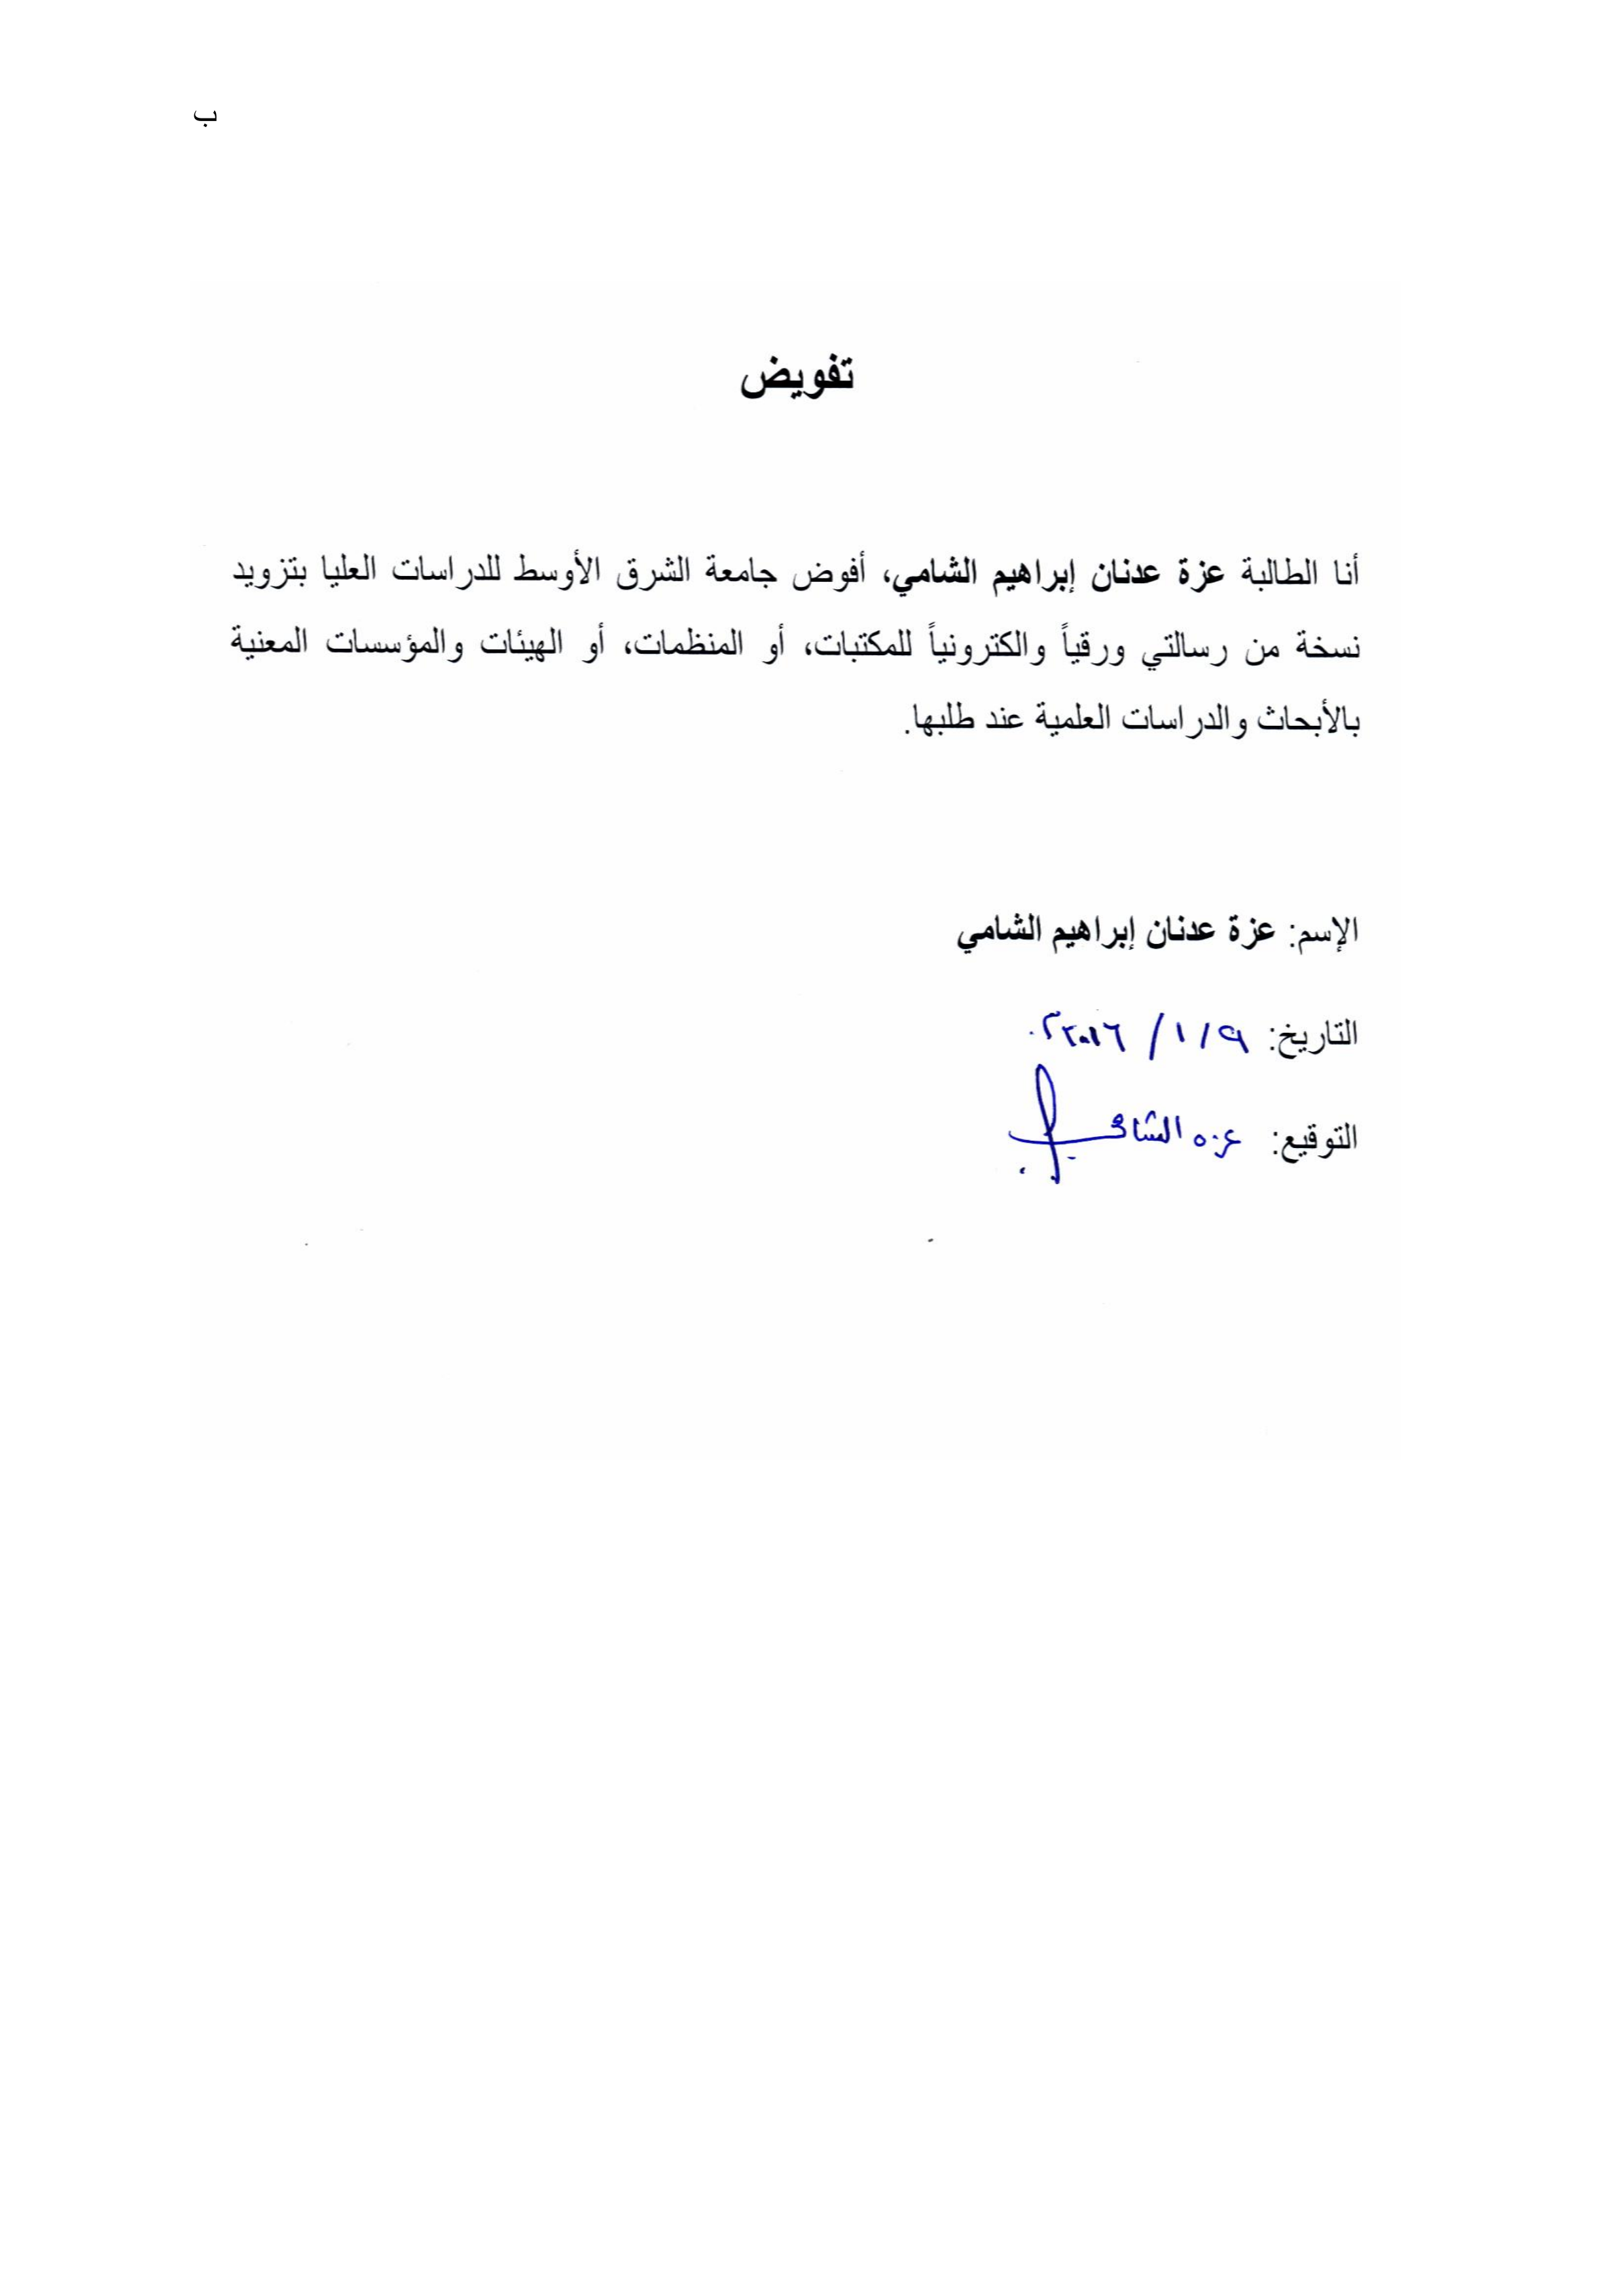 ب
تفويض
أنا الطالبة عزة عدنان إبراهيم الشامي، أفوض جامعة الشرق الأوسط للدراسات العليا بتزويد
نسخة من رسالتي ورقياً والكترونياً للمكتبات، أو المنظمات، أو الهيئات والمؤسسات المعنية
بالأبحاث والدراسات العلمية عند طلبها.
الإسم: عزة عدنان إبراهيم الشامي
التاريخ: ٩ / ١ / ٢٠١٦م.
التوقيع: عزه الشامي